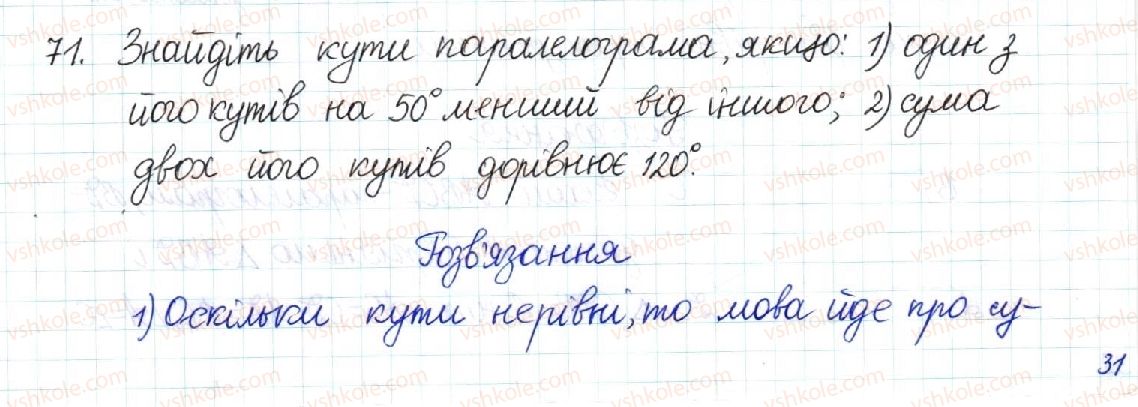 71. Знайдіть кути паралелограма, якщо: 1) один з
його кутів на 50° менший від іншого; 2) сума
двох його кутів дорівнює 120°.
Розв'язання
1) Оскільки кути нерівні, то мова йде про су-
31